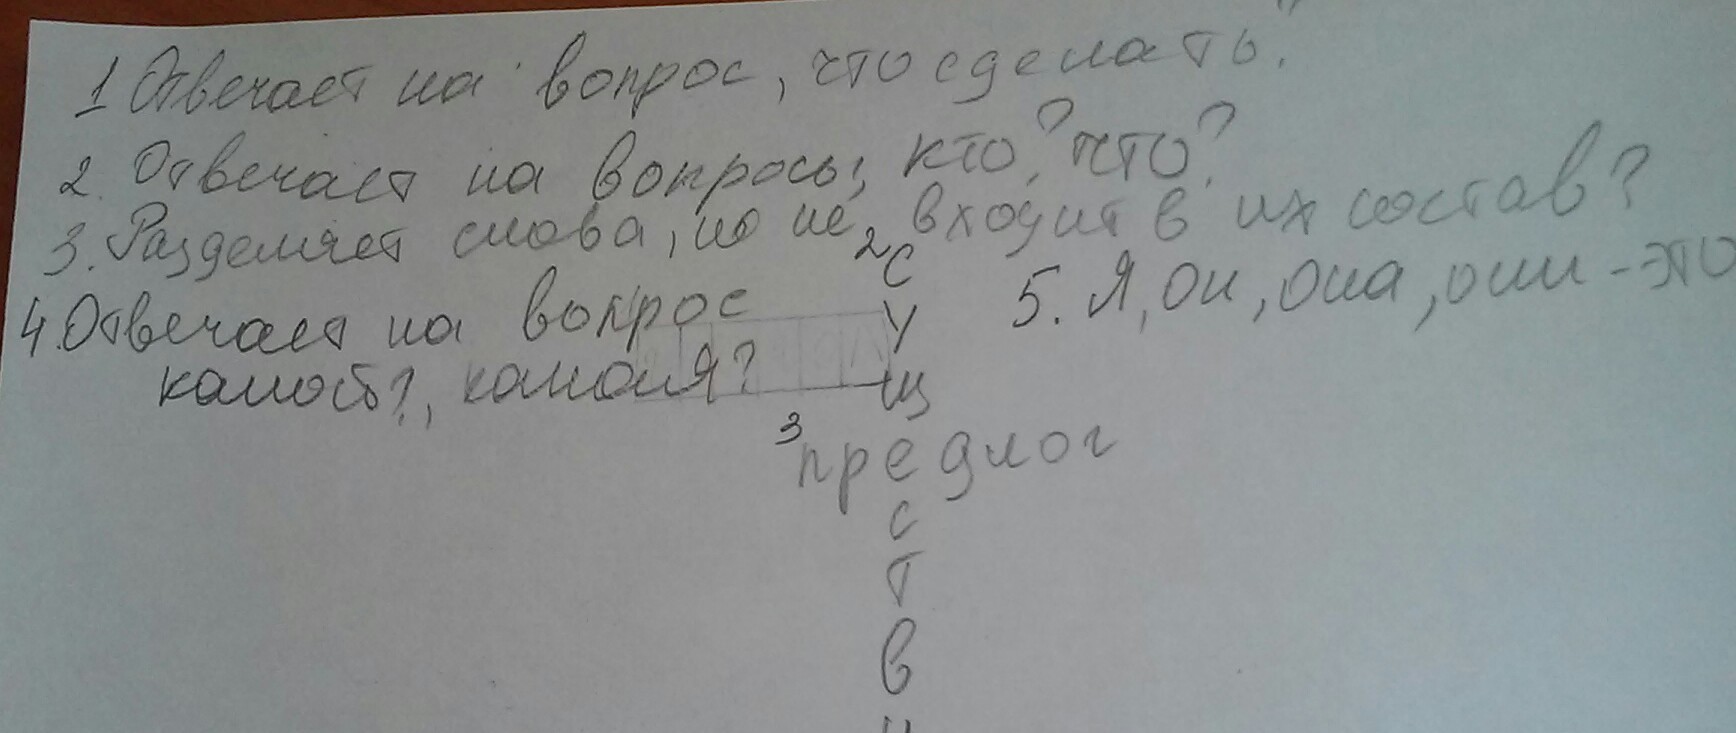 1 Отвечает на вопрос, что сделать?
2. Отвечает на вопросы, кто? что?
3. Разделяет слова, но не входит в их состав?
4. Отвечает на вопрос
какой?, какая?
5. Я, он, она, они - это
2
С
У
Щ
3 предлог
С
Т
В